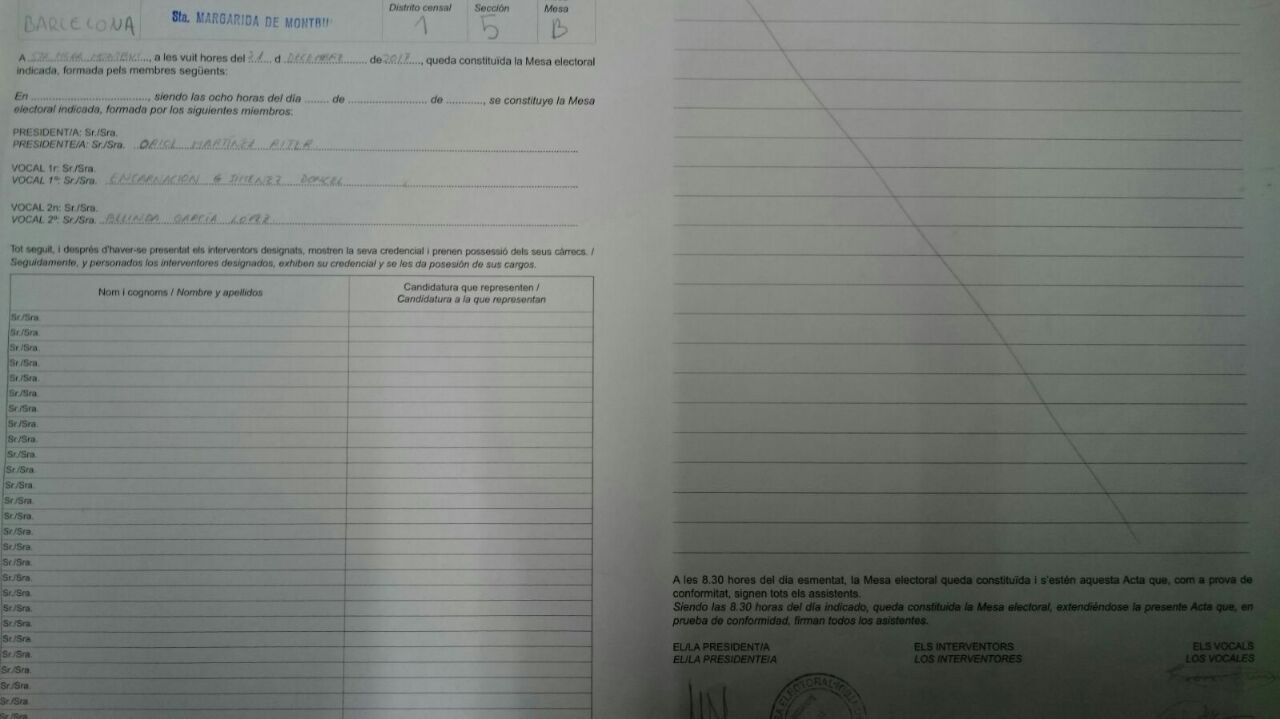 Distrito censal Sección Mesa
BARCELONA Sta. MARGARIDA DE MONTBUI 1 5 B
A STA MARG MONTBUI, a les vuit hores del 21 d DECEMBRE de 2017, queda constituïda la Mesa electoral
indicada, formada pels membres següents:
En ............................, siendo las ocho horas del día ....... de ........................ de ..........., se constituye la Mesa
electoral indicada, formada por los siguientes miembros:
PRESIDENT/A: Sr./Sra.
PRESIDENTE/A: Sr./Sra. ORIOL MARTÍNEZ
VOCAL 1r: Sr./Sra.
VOCAL 1º: Sr./Sra. ENCARNACIÓN JIMENEZ DONCEL
VOCAL 2n: Sr./Sra.
VOCAL 2º: Sr./Sra. GARCÍA LOPEZ
Tot seguit, i després d'haver-se presentat els interventors designats, mostren la seva credencial i prenen possessió dels seus càrrecs. /
Seguidamente, y personados los interventores designados, exhiben su credencial y se les da posesión de sus cargos.
Nom i cognoms / Nombre y apellidos
Candidatura que representen /
Candidatura a la que representan
Sr./Sra.
Sr./Sra.
Sr./Sra.
Sr./Sra.
Sr./Sra.
Sr./Sra.
Sr./Sra.
Sr./Sra.
Sr./Sra.
Sr./Sra.
Sr./Sra.
Sr./Sra.
Sr./Sra.
Sr./Sra.
Sr./Sra.
Sr./Sra.
Sr./Sra.
Sr./Sra.
Sr./Sra.
Sr./Sra.
Sr./Sra.
Sr./Sra.
Sr./Sra.
Sr./Sra.
Sr./Sra.
Sr./Sra.
Sr./Sra.
A les 8.30 hores del dia esmentat, la Mesa electoral queda constituïda i s'estén aquesta Acta que, com a prova de
conformitat, signen tots els assistents.
Siendo las 8.30 horas del día indicado, queda constituida la Mesa electoral, extendiéndose la presente Acta que, en
prueba de conformidad, firman todos los asistentes.
EL/LA PRESIDENT/A ELS INTERVENTORS ELS VOCALS
EL/LA PRESIDENTE/A LOS INTERVENTORES LOS VOCALES
ELECTORAL